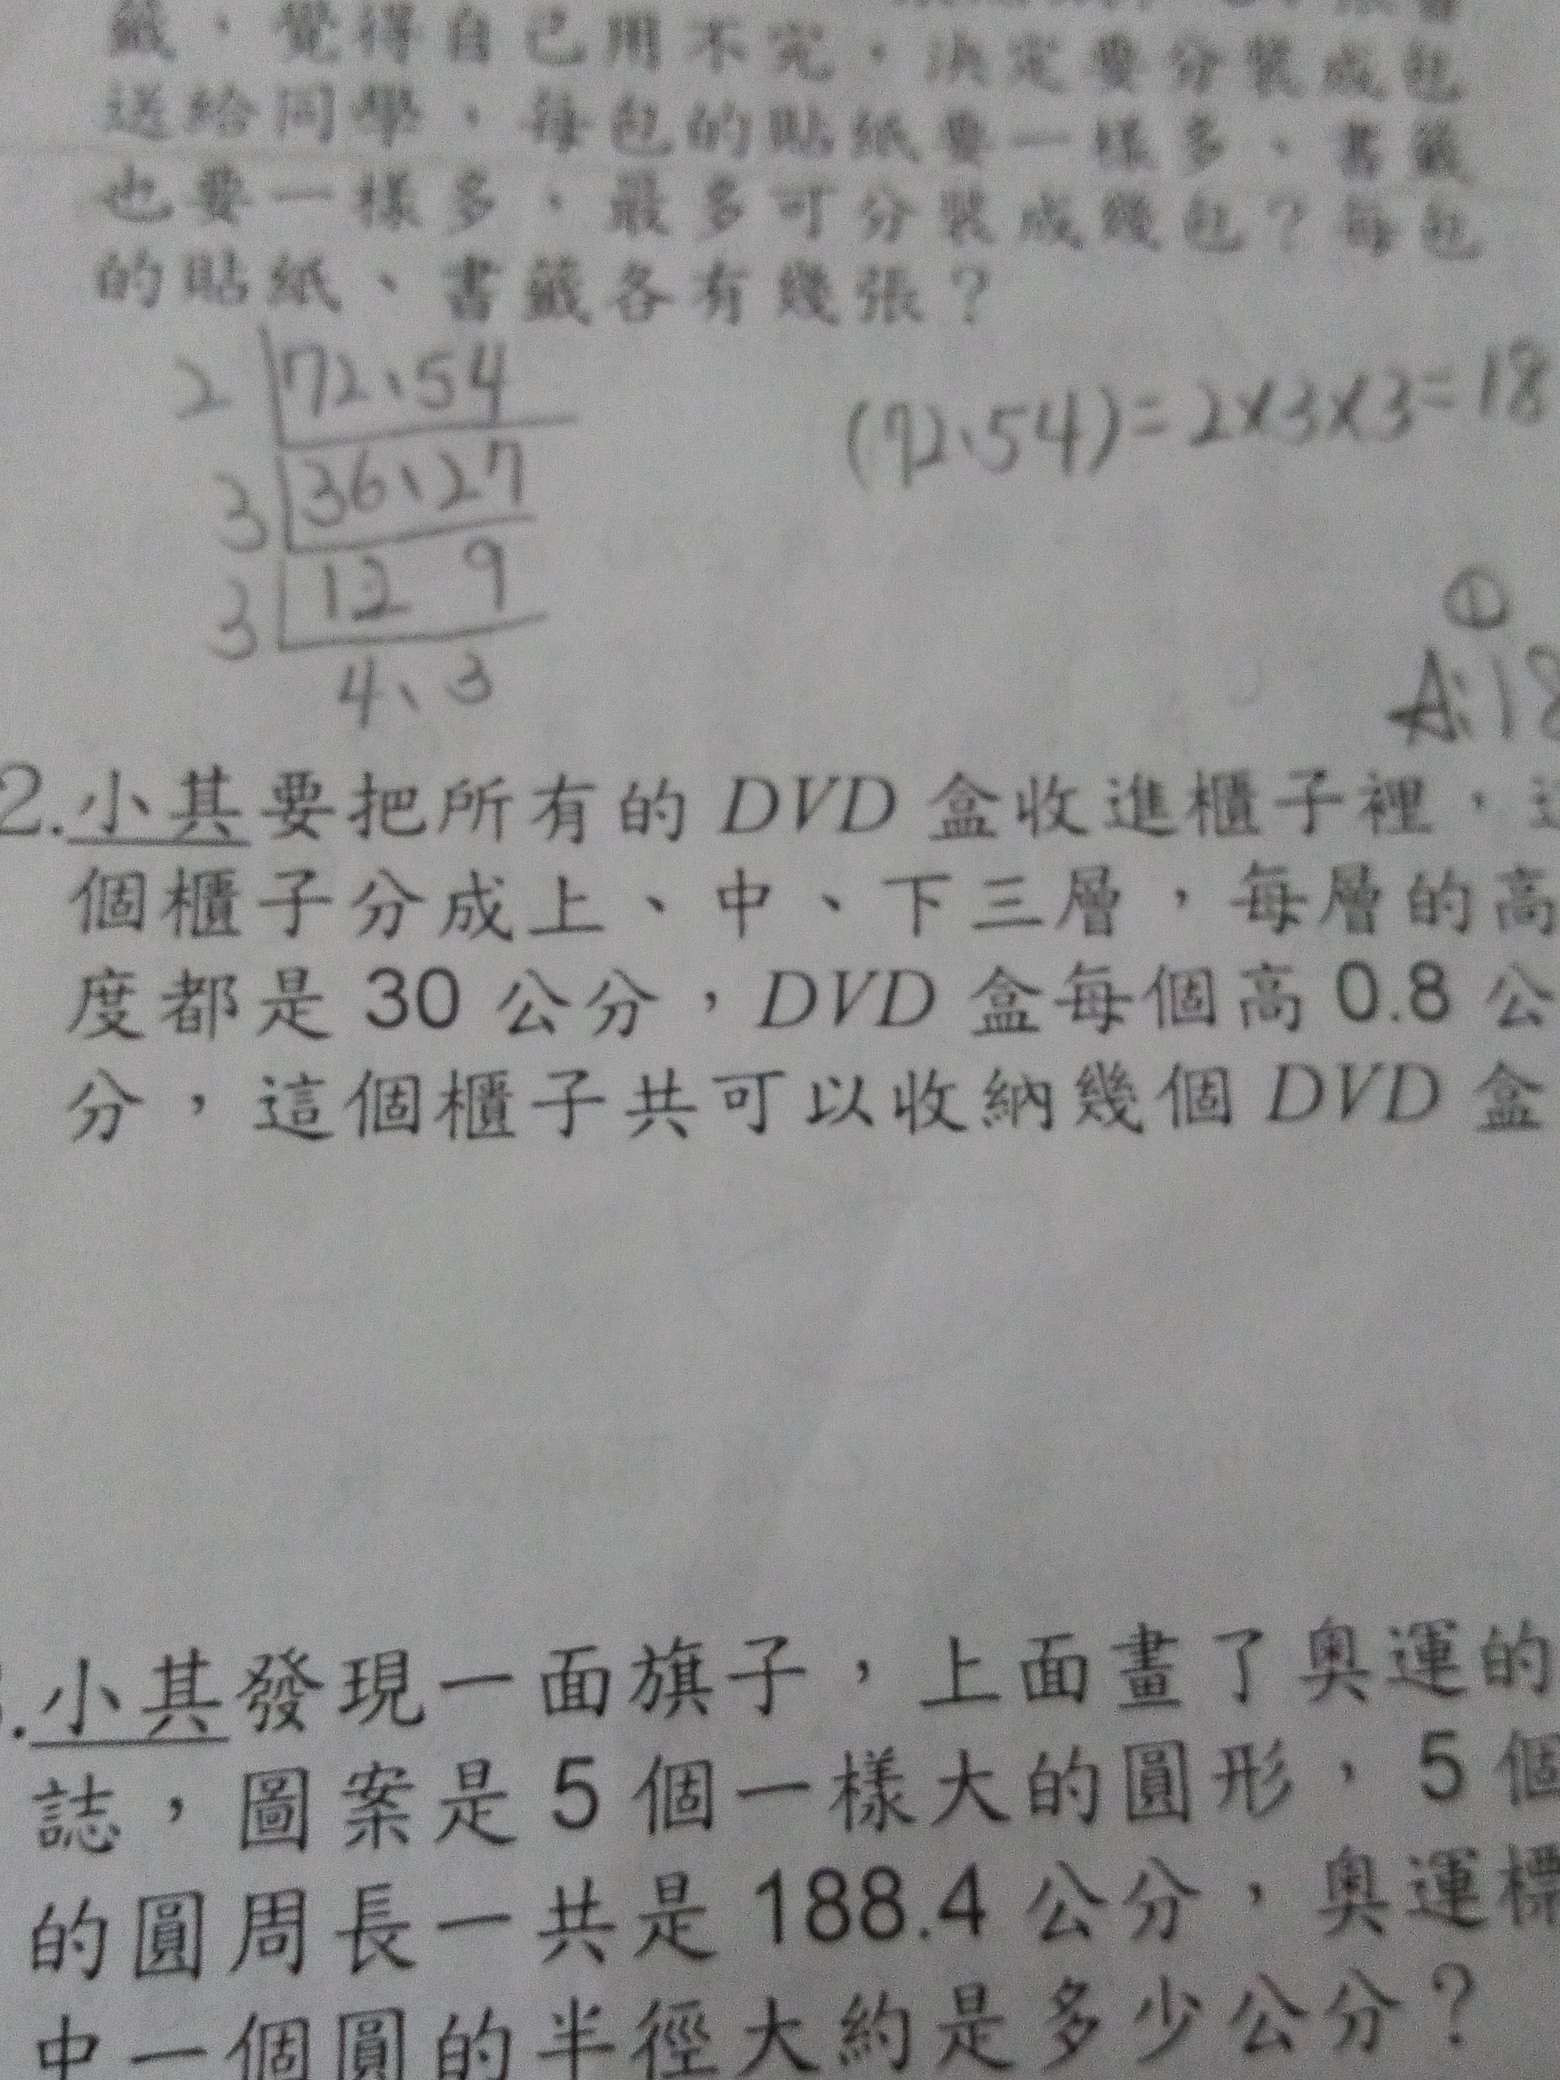 籤，覺得自己用不完，決定要分裝成包
送給同學，每包的貼紙要一樣多、書籤
也要一樣多，最多可分裝成幾包？每包
的貼紙、書籤各有幾張？
2 72、54
3 36、27
3 12 9
4、3
(72、54)=2×3×3=18
①
A:18
2.小其要把所有的 DVD 盒收進櫃子裡，
個櫃子分成上、中、下三層，每層的高
度都是 30 公分，DVD 盒每個高 0.8 公
分，這個櫃子共可以收納幾個 DVD 盒
.小其發現一面旗子，上面畫了奧運的
誌，圖案是 5 個一樣大的圓形，5 個
的圓周長一共是 188.4 公分，奧運標
中一個圓的半徑大約是多少公分？